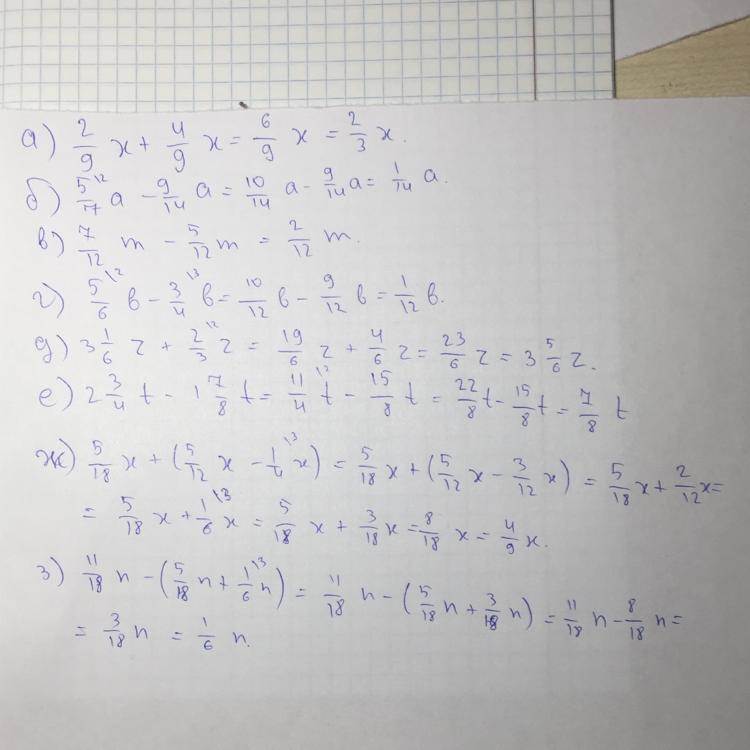 а) 2/9 x + 4/9 x = 6/9 x = 2/3 x.
б) 5/7 \2 a - 9/14 a = 10/14 a - 9/14 a = 1/14 a.
в) 7/12 m - 5/12 m = 2/12 m.
г) 5/6 \2 в - 3/4 \3 в = 10/12 в - 9/12 в = 1/12 в.
д) 3 1/6 z + 2/3 \2 z = 19/6 z + 4/6 z = 23/6 z = 3 5/6 z.
е) 2 3/4 t - 1 7/8 t = 11/4 \2 t - 15/8 t = 22/8 t - 15/8 t = 7/8 t
ж) 5/18 x + (5/12 x - 1/4 \3 x) = 5/18 x + (5/12 x - 3/12 x) = 5/18 x + 2/12 x =
= 5/18 x + 1/6 \3 x = 5/18 x + 3/18 x = 8/18 x = 4/9 x.
з) 11/18 n - (5/18 n + 1/6 \3 n) = 11/18 n - (5/18 n + 3/18 n) = 11/18 n - 8/18 n =
= 3/18 n = 1/6 n.